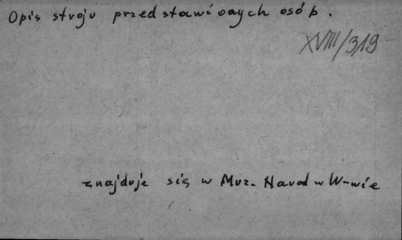 Opis stroju przedstawionych osób.
XVIII/319
znajduje się w Muz. Narod w W-wie